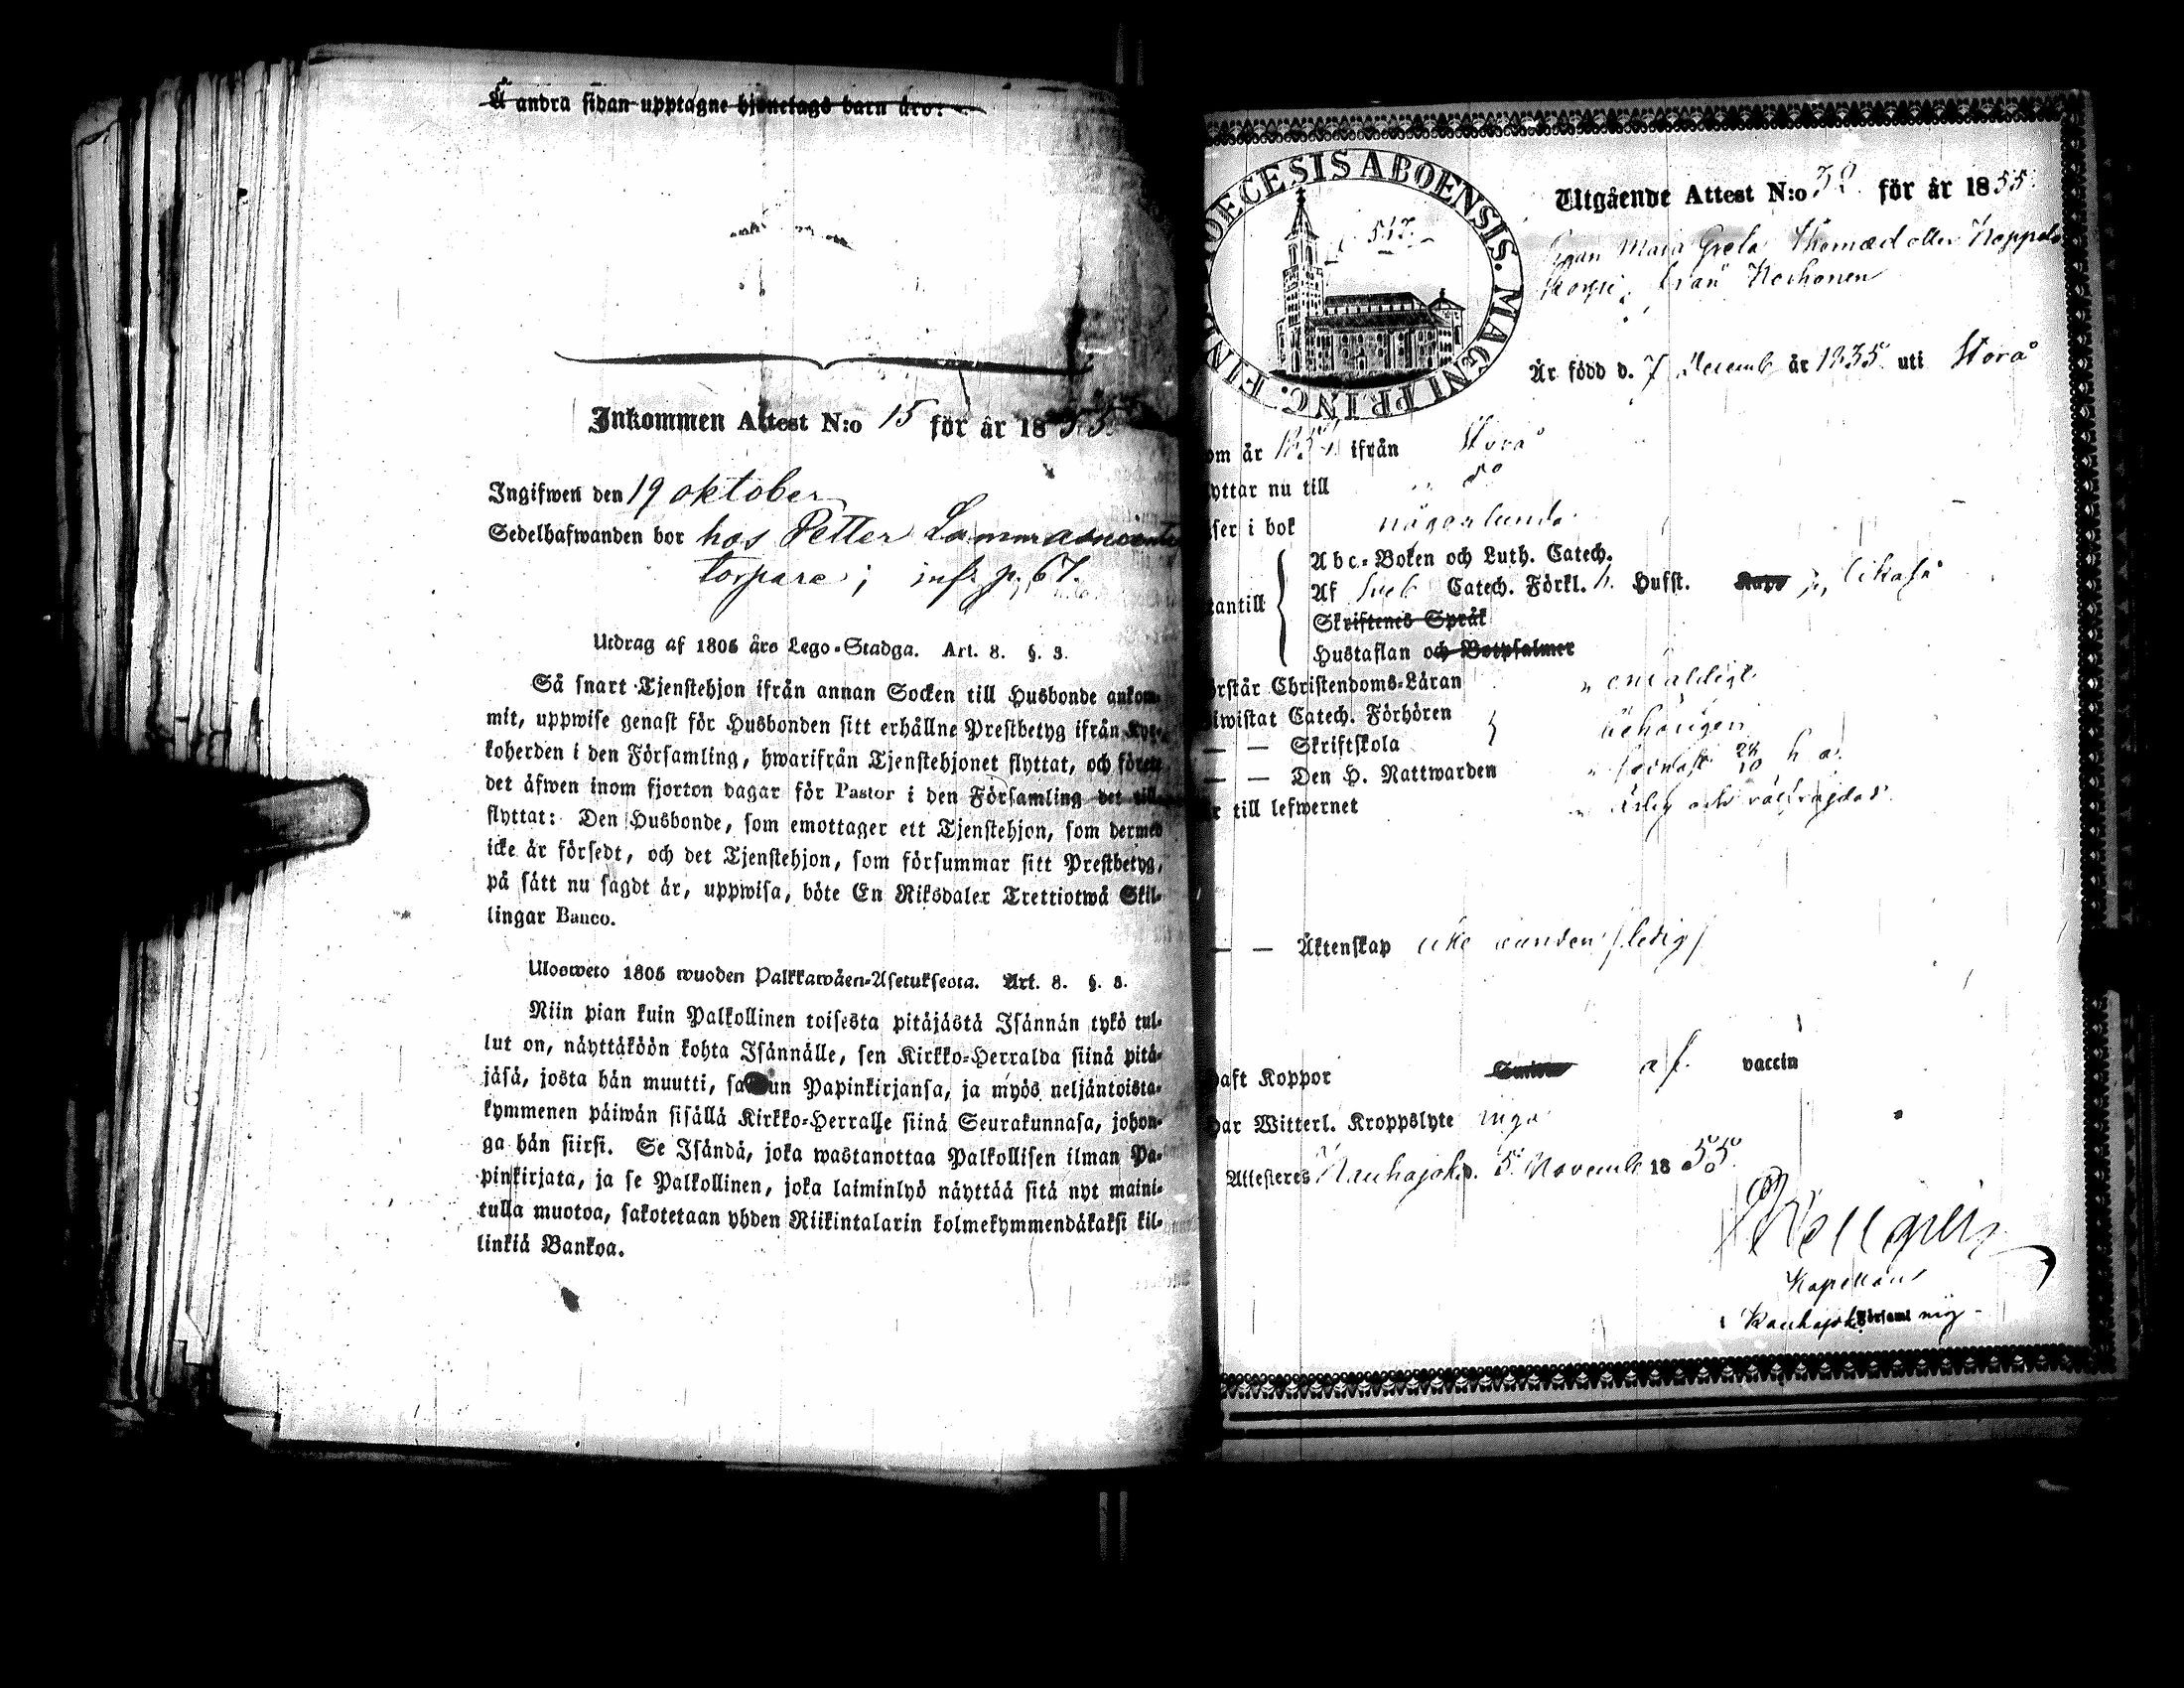 Å andra sidan upptagne hjonelags barn äro:
Inkommen Attest N:o 15 för år 1855
Ingifwen den 19 oktober
Sedelhafwanden bor hos Petter
torpare; inf. p. 67.
Utdrag af 1805 års Lego-Stadga. Art. 8. §. 3.
Så snart Tjenstehjon ifrån annan Socken till Husbonde ankom-
mit, uppwise genast för Husbonden sitt erhållne Prestbetyg ifrån Kyr-
koherden i den Församling, hwarifrån Tjenstehjonet flyttat, och förete
det äfwen inom fjorton dagar för Pastor i den Församling det till-
flyttat: Den Husbonde, som emottager ett Tjenstehjon, som dermed
icke är försedt, och det Tjenstehjon, som försummar sitt Prestbetyg,
på sätt nu sagdt är, uppwisa, böte En Riksdaler Trettiotwå Skil-
lingar Banco.
Ulosweto 1805 wuoden Palkkawäen-Asetuksesta. Art. 8. §. 3.
Niin pian kuin Palkollinen toisesta pitäjästä Isännän tykö tul-
lut on, näyttäköön kohta Isännälle, sen Kirkko-Herralda siinä pitä-
jäsä, josta hän muutti, saadun Papinkirjansa, ja myös neljäntoista-
kymmenen päiwän sisällä Kirkko-Herralle siinä Seurakunnasa, johon-
ga hän siirsi. Se Isändä, joka wastanottaa Palkollisen ilman Pa-
pinkirjata, ja se Palkollinen, joka laiminlyö näyttää sitä nyt maini-
tulla muotoa, sakotetaan yhden Riikintalarin kolmekymmendäkaksi kil-
linkiä Bankoa.
DIOECESIS ABOENSIS. MAGNI PRINC. FINL
517.
Utgående Attest N:o 32 för år 1855.
Pigan Maria Greta Thomæd otter
från
Är född d. 7 Decemb år 1835 uti Storå
om år ifrån Storå
yttar nu till do
ser i bok någorlunda
Abc-Boken och Luth. Catech.
Af Sveb Catech. Förkl. h. Hufst. likaså
antill
Skriftenes Språk
Hustaflan och Botpsalmer
örstår Christendoms-Läran enfaldigt
iwistat Catech. Förhören
— — Skriftskola behörigen
— — Den H. Nattwarden senast 28/10 h. a.
r till lefwernet ärlig och välfrejdad
— — Äktenskap icke bunden /ledig/
aft Koppor af vaccin
har Witterl. Kroppslyte inga
Attesteres Kauhajoki d. 5 Novemb 1855.
Kapellan
i Kauhajoki Församlning